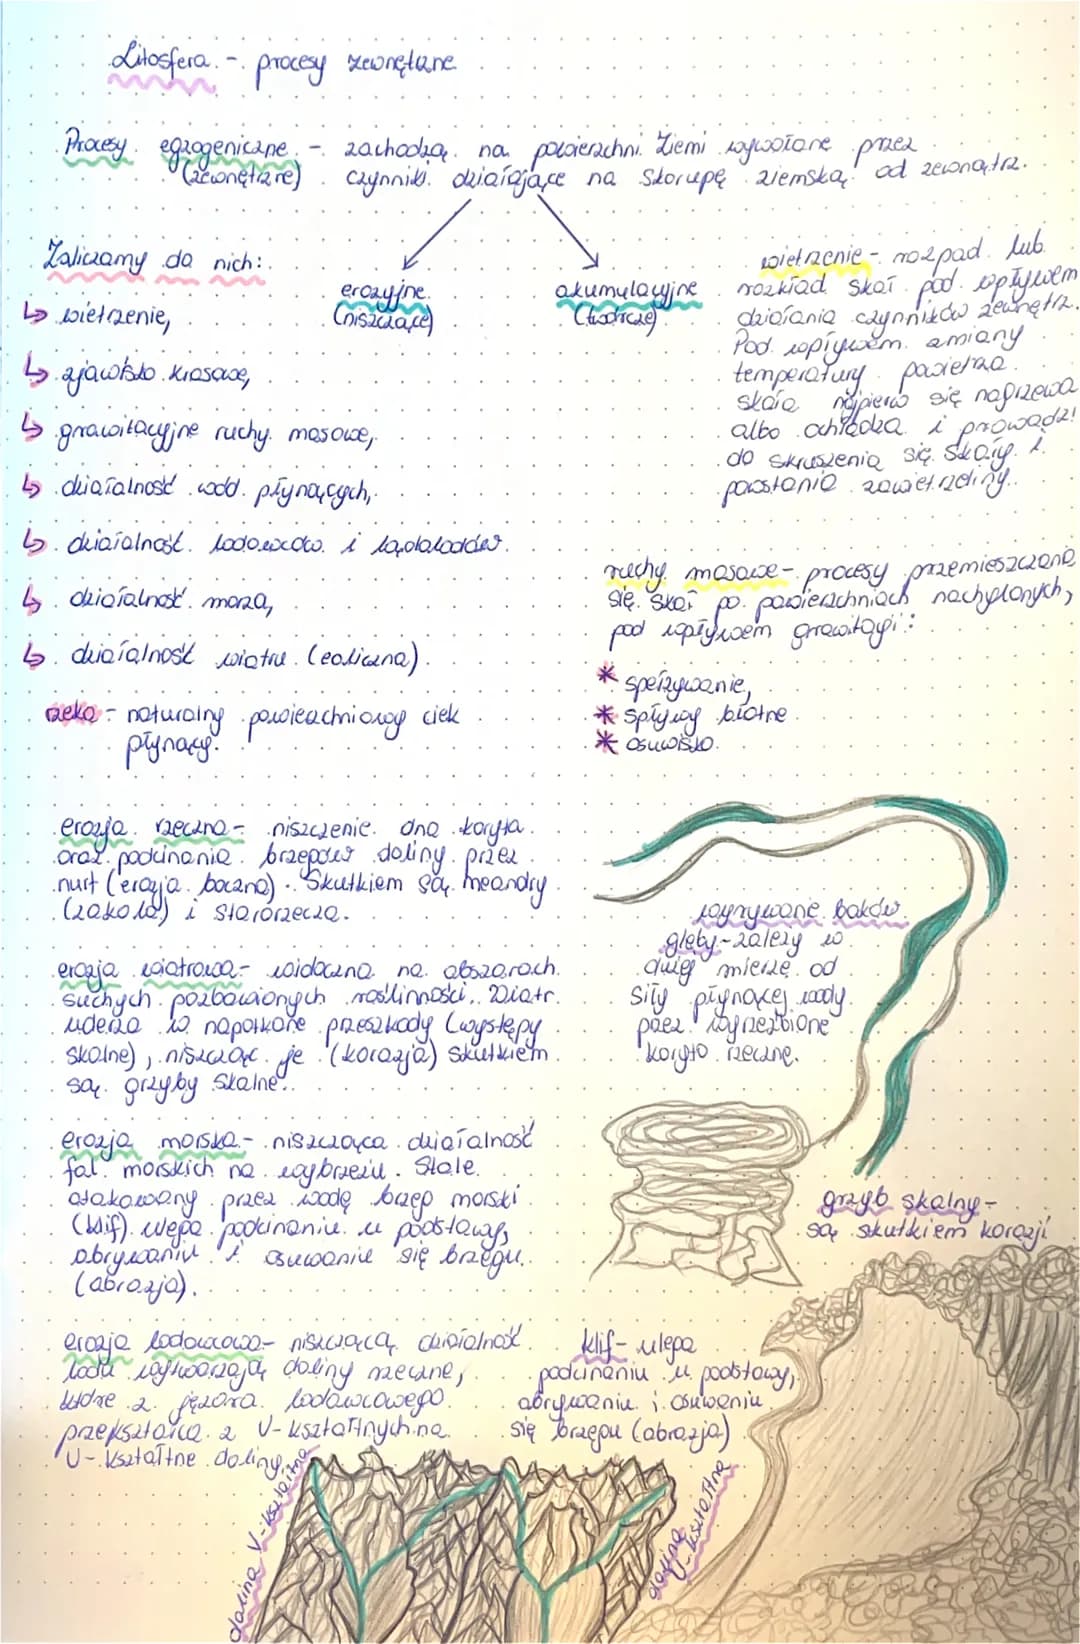 Litosfera - procesy zewnętrzne
Procesy egzogeniczne - zachodzą na powierzchni Ziemi wywołane przez
(zewnętrzne) czynniki działające na skorupę ziemską od zewnątrz.
Zaliczamy do nich:
↳ wietrzenie,
↳ zjawisko krasowe,
↳ grawitacyjne ruchy masowe,
↳ działalność wód płynących,
↳ działalność lodowców i lądolodów
↳ działalność morza,
↳ działalność wiatru (eoliczna)
erozyjne
(niszczące)
akumulacyjne
(twórcze)
wietrzenie - rozpad lub
rozkład skał pod wpływem
działania czynników zewnętrz.
Pod wpływem zmiany
temperatury powietrza
skała najpierw się nagrzewa
albo ochładza i prowadzi
do skruszenia się skały i
powstania zwietrzeliny.
ruchy masowe - procesy przemieszczania
się skał po powierzchniach nachylonych,
pod wpływem grawitacji:
* spełzywanie,
* spływy błotne
* osuwisko
rzeka - naturalny powierzchniowy ciek
płynący.
erozja rzeczna - niszczenie dna koryta
oraz podcinania brzegów doliny przez
nurt (erozja boczna). Skutkiem są meandry
(zakola) i starorzecza.
erozja wiatrowa - widoczna na obszarach
suchych pozbawionych roślinności. Wiatr
uderza w napotkane przeszkody (występy
skalne), niszcząc je (korazja) skutkiem
są grzyby skalne.
erozja morska - niszcząca działalność
fal morskich na wybrzeżu. Stale
atakowany przez wodę brzeg morski
(klif) ulega podcinaniu u podstawy,
obrywaniu i osuwanie się brzegu.
(abrazja).
erozja lodowcowa - niszczącą działalność
lodu wytwarzają doliny rzeczne,
które z jęzora lodowcowego
przekształca z V-kształtnych na
U-kształtne doliny.
wyrywane boków
gleby - zależy w
dużej mierze od
siły płynącej wody
przez wyrzeźbione
koryto rzeczne.
grzyb skalny -
są skutkiem korazji
klif - ulega
podcinaniu u podstawy,
obrywaniu i osuwaniu
się brzegu (abrazja)
dolina V-kształtna
dolina U-kształtna